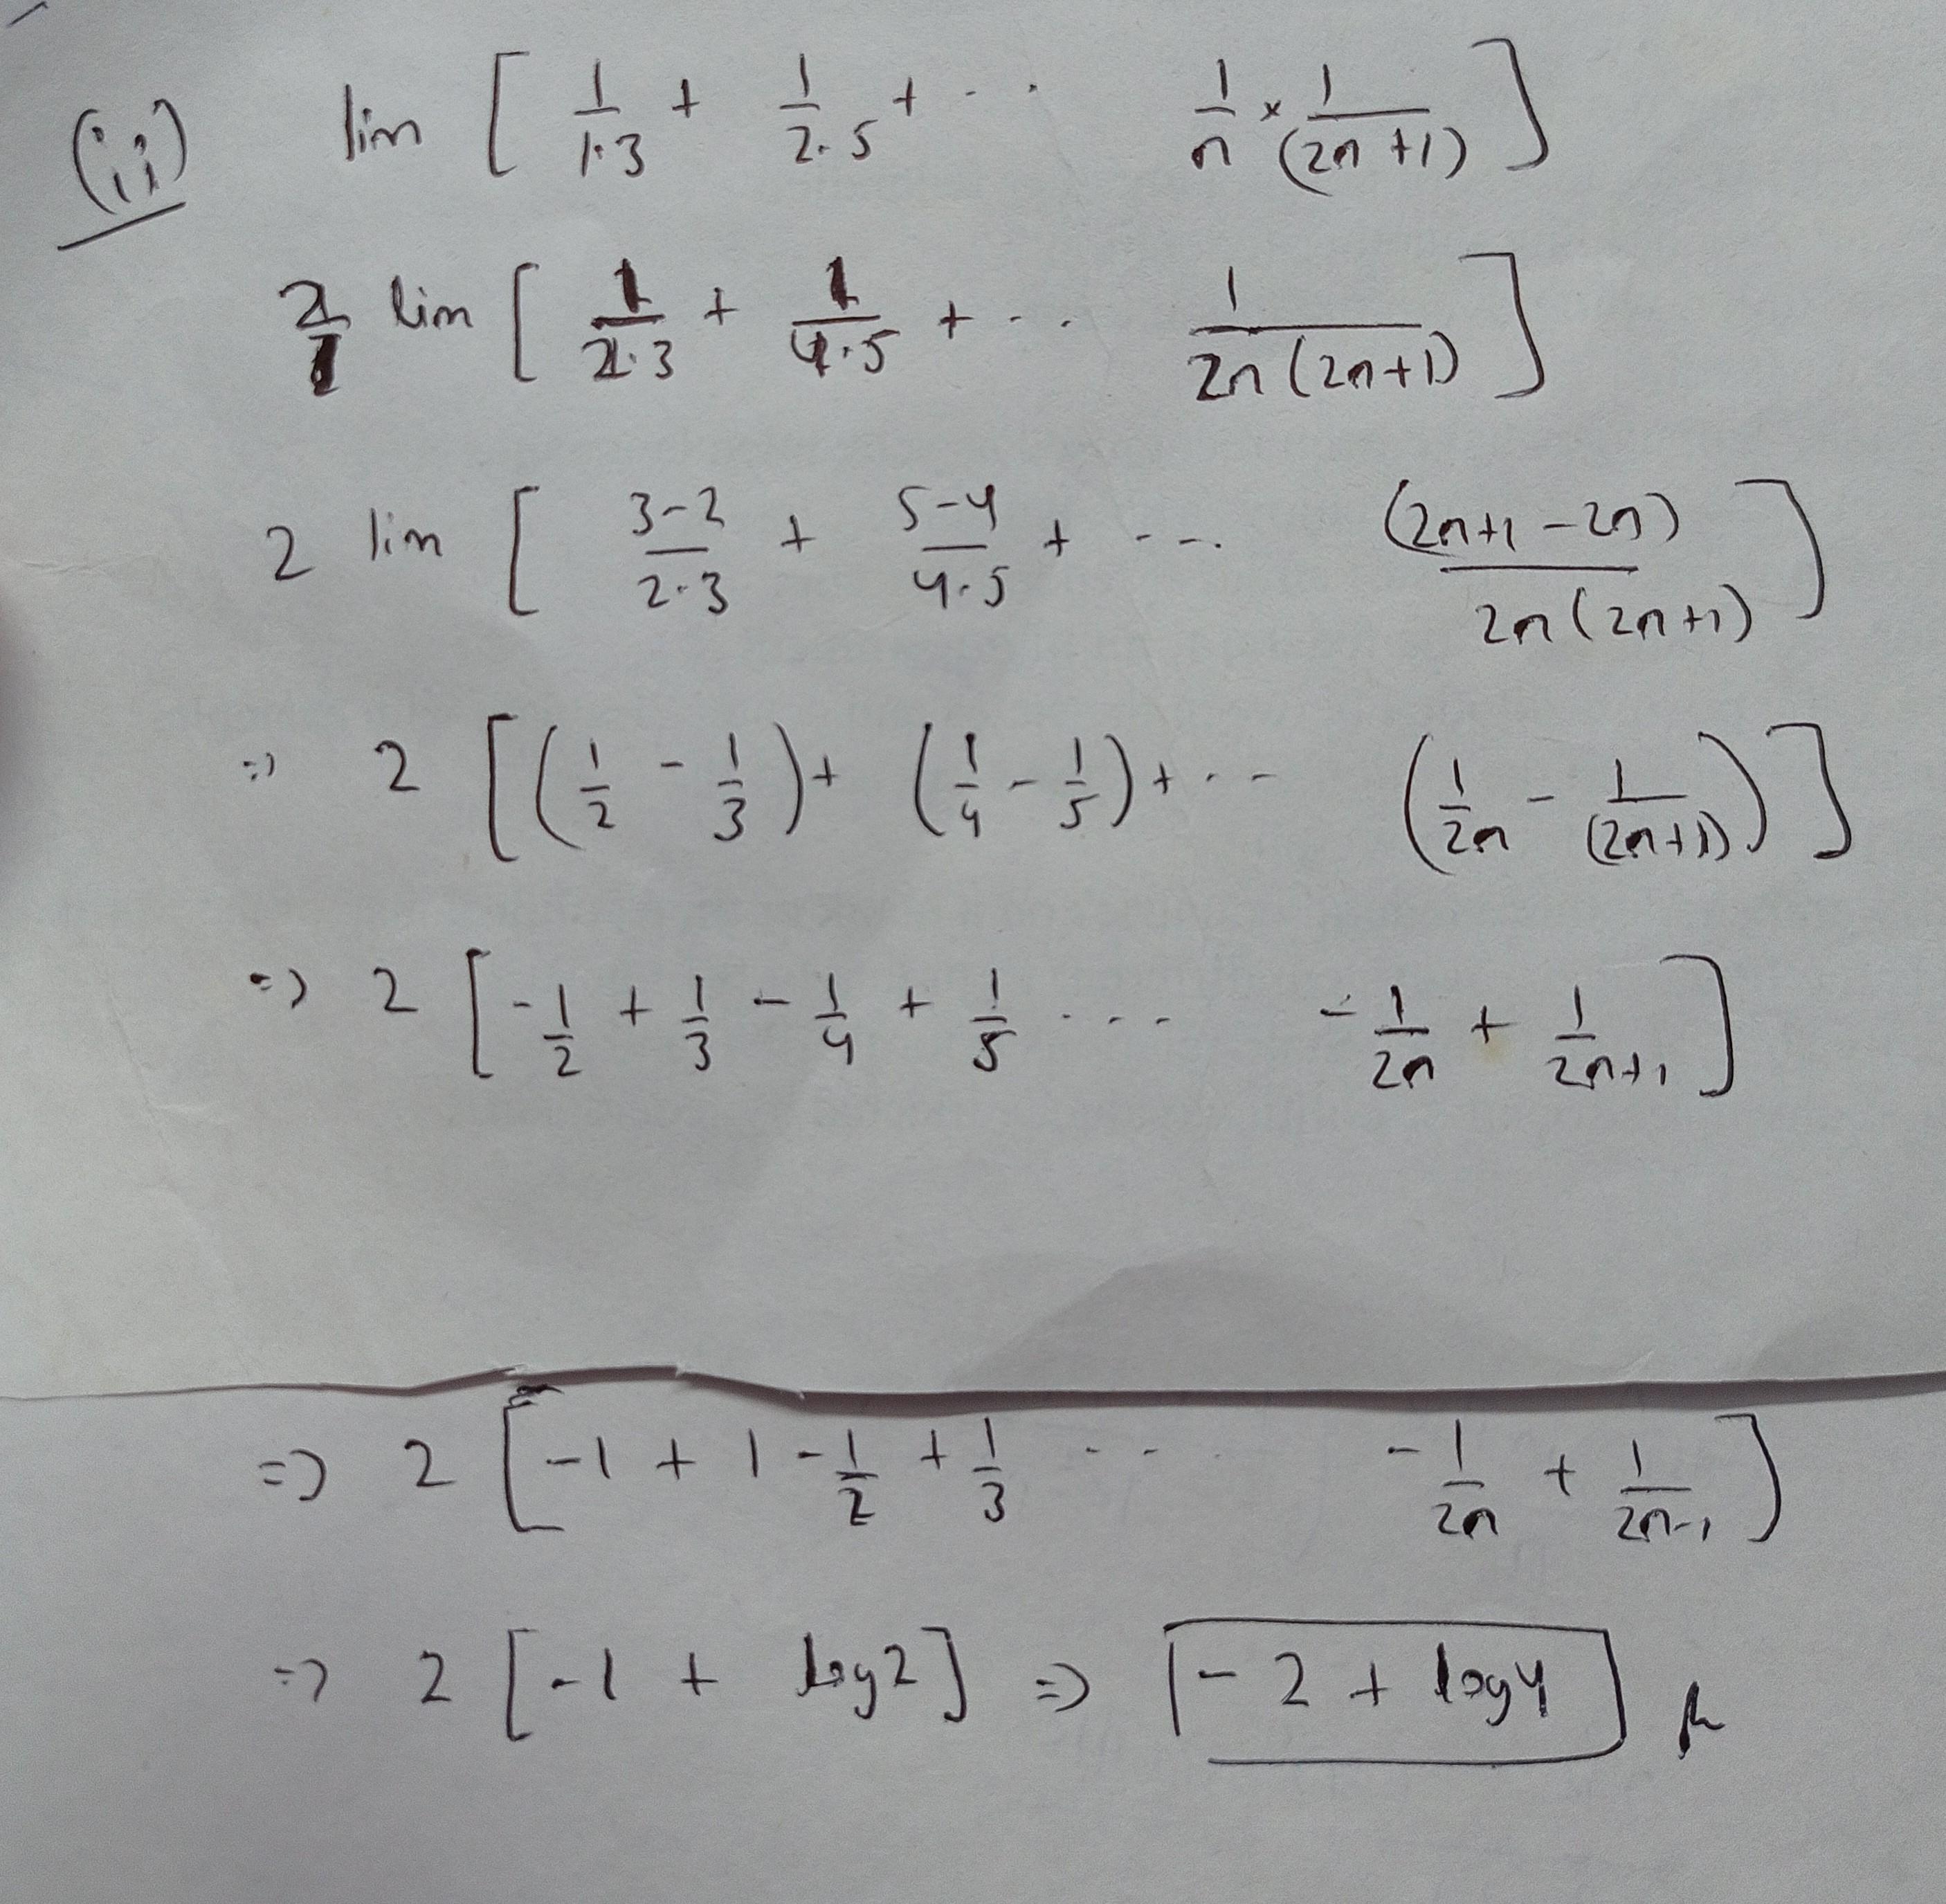 (ii) lim [ 1/1·3 + 1/2·5 + ·· · 1/n × 1/(2n+1) ]
2/1 lim [ 1/2·3 + 1/4·5 + ··· 1/2n(2n+1) ]
2 lim [ 3-2/2·3 + 5-4/4·5 + ---· (2n+1-2n)/2n(2n+1) ]
=> 2 [ (1/2 - 1/3) + (1/4 - 1/5) + ·-- (1/2n - 1/(2n+1)) ]
=> 2 [ -1/2 + 1/3 - 1/4 + 1/5 ···- -1/2n + 1/2n+1 ]
=> 2 [ -1 + 1 - 1/2 + 1/3 --- · -1/2n + 1/2n-1 ]
=> 2 [ -1 + log2 ] => -2 + log4